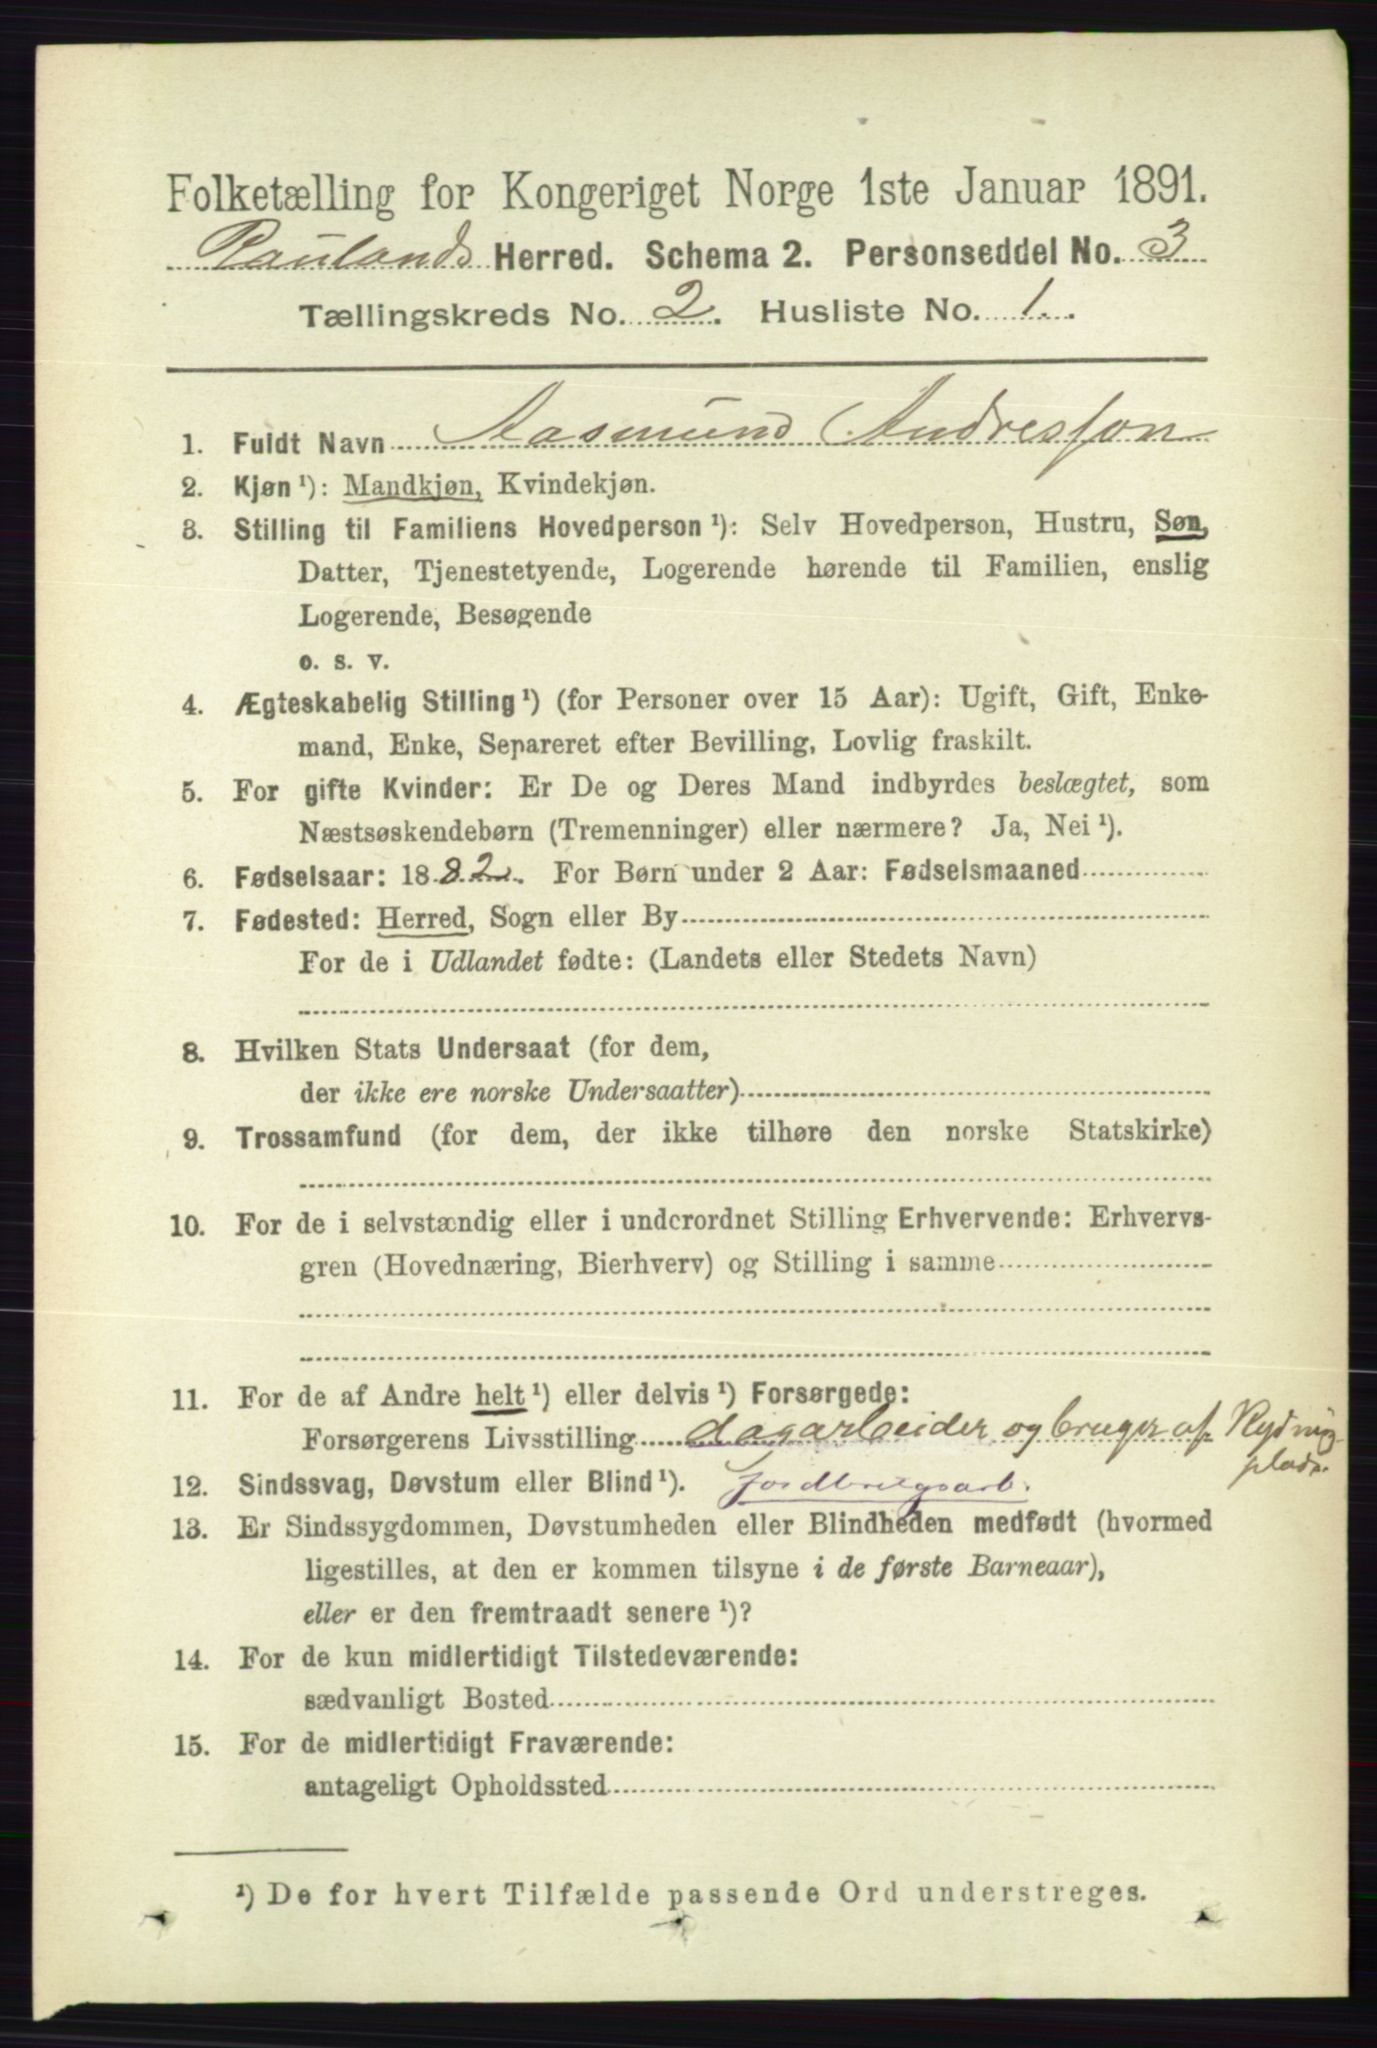 Folketælling for Kongeriget Norge 1ste Januar 1891.
Raulands Herred. Schema 2. Personseddel No. 3
Tællingskreds No. 2. Husliste No. 1.
1. Fuldt Navn Aasmund Andresson
2. Kjøn ¹): Mandkjøn, Kvindekjøn.
3. Stilling til Familiens Hovedperson ¹): Selv Hovedperson, Hustru, Søn,
Datter, Tjenestetyende, Logerende hørende til Familien, enslig
Logerende, Besøgende
o. s. v.
4. Ægteskabelig Stilling ¹) (for Personer over 15 Aar): Ugift, Gift, Enke-
mand, Enke, Separeret efter Bevilling, Lovlig fraskilt.
5. For gifte Kvinder: Er De og Deres Mand indbyrdes beslægtet, som
Næstsøskendebørn (Tremenninger) eller nærmere? Ja, Nei ¹).
6. Fødselsaar: 1882. For Børn under 2 Aar: Fødselsmaaned
7. Fødested: Herred, Sogn eller By
For de i Udlandet fødte: (Landets eller Stedets Navn)
8. Hvilken Stats Undersaat (for dem,
der ikke ere norske Undersaatter)
9. Trossamfund (for dem, der ikke tilhøre den norske Statskirke)
10. For de i selvstændig eller i underordnet Stilling Erhvervende: Erhvervs-
gren (Hovednæring, Bierhverv) og Stilling i samme
11. For de af Andre helt ¹) eller delvis ¹) Forsørgede:
Forsørgerens Livsstilling dagarbeider og bruger af Rydnings
plads.
12. Sindssvag, Døvstum eller Blind ¹). Jordbrugsarb.
13. Er Sindssygdommen, Døvstumheden eller Blindheden medfødt (hvormed
ligestilles, at den er kommen tilsyne i de første Barneaar),
eller er den fremtraadt senere ¹)?
14. For de kun midlertidigt Tilstedeværende:
sædvanligt Bosted
15. For de midlertidigt Fraværende:
antageligt Opholdssted
¹) De for hvert Tilfælde passende Ord understreges.